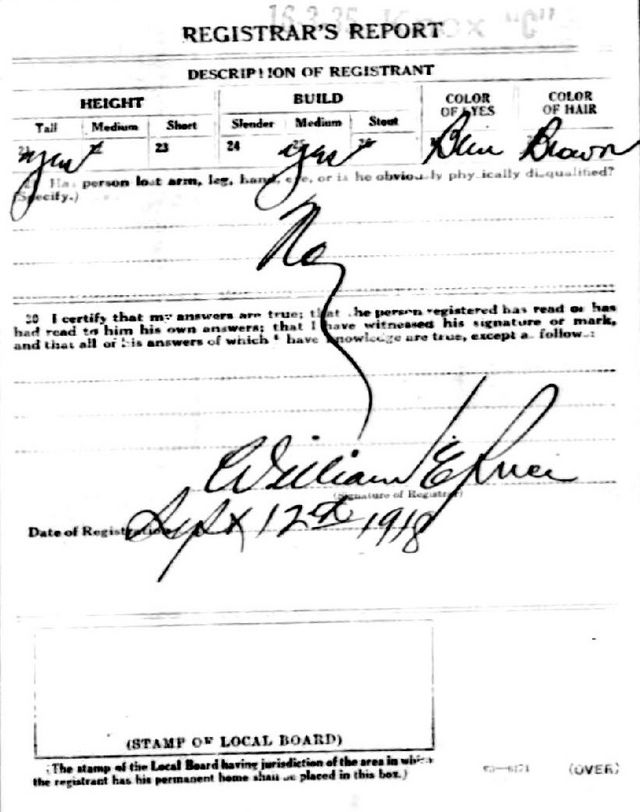 16-3-35 Knox "C"
REGISTRAR'S REPORT
DESCRIPTION OF REGISTRANT
HEIGHT BUILD COLOR OF EYES COLOR OF HAIR
Tall Medium Short Slender Medium Stout
21 yes 22 23 24 25 yes 26 Blue Brown
Has person lost arm, leg, hand, eye, or is he obviously physically disqualified?
(Specify.)
No
30 I certify that my answers are true; that the person registered has read or has
had read to him his own answers; that I have witnessed his signature or mark,
and that all of his answers of which I have knowledge are true, except as follows:
William E
(Signature of Registrar)
Date of Registration Sept 12th 1918
(STAMP OF LOCAL BOARD)
(The stamp of the Local Board having jurisdiction of the area in which
the registrant has his permanent home shall be placed in this box.)
(OVER)